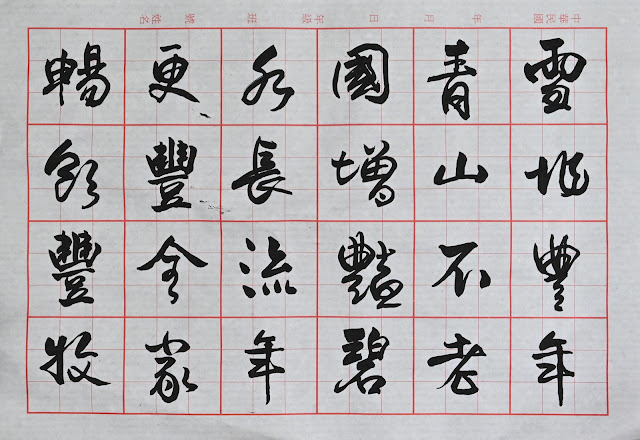 中華民國 年 月 日 年級 班 號 姓名
雪堆豐年
青山不老
國增豔碧
水長流年
更豐家
暢飲豐牧